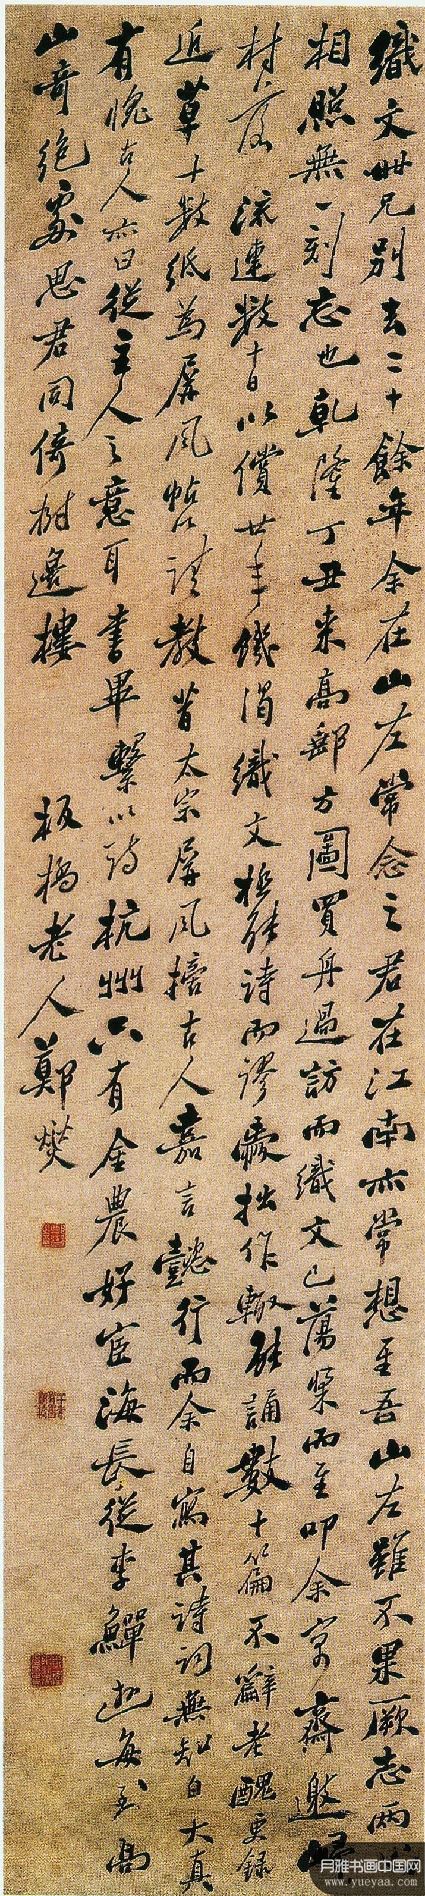 織文世兄别去二十餘年余在山左常念之君在江南亦常想至吾山左雖不果厥志两
相照無一刻忘也乾隆丁丑来高郵方圖買舟過訪而織文已蕩槳而至叩余寓齋邀歸
村落流連數十日以償廿年饑渴織文極能詩而謬愛拙作輒能誦數十篇不辭老醜更録
近草十数纸為屏風帖以請教昔太宗屏風揞古人嘉言懿行而余自寫其詩詞無知自大真
有愧古人亦曰從主人之意耳書畢繫以詩杭州只有金農好宦海長從李鱓遊每到高
山奇绝處思君同倚樹邊樓
板橋老人鄭燮
月雅书画中国网
www.yueyaa.com